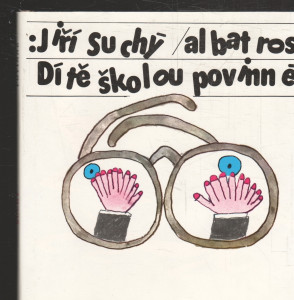 :Jiří Suchý/albatros
Dítě školou povinné